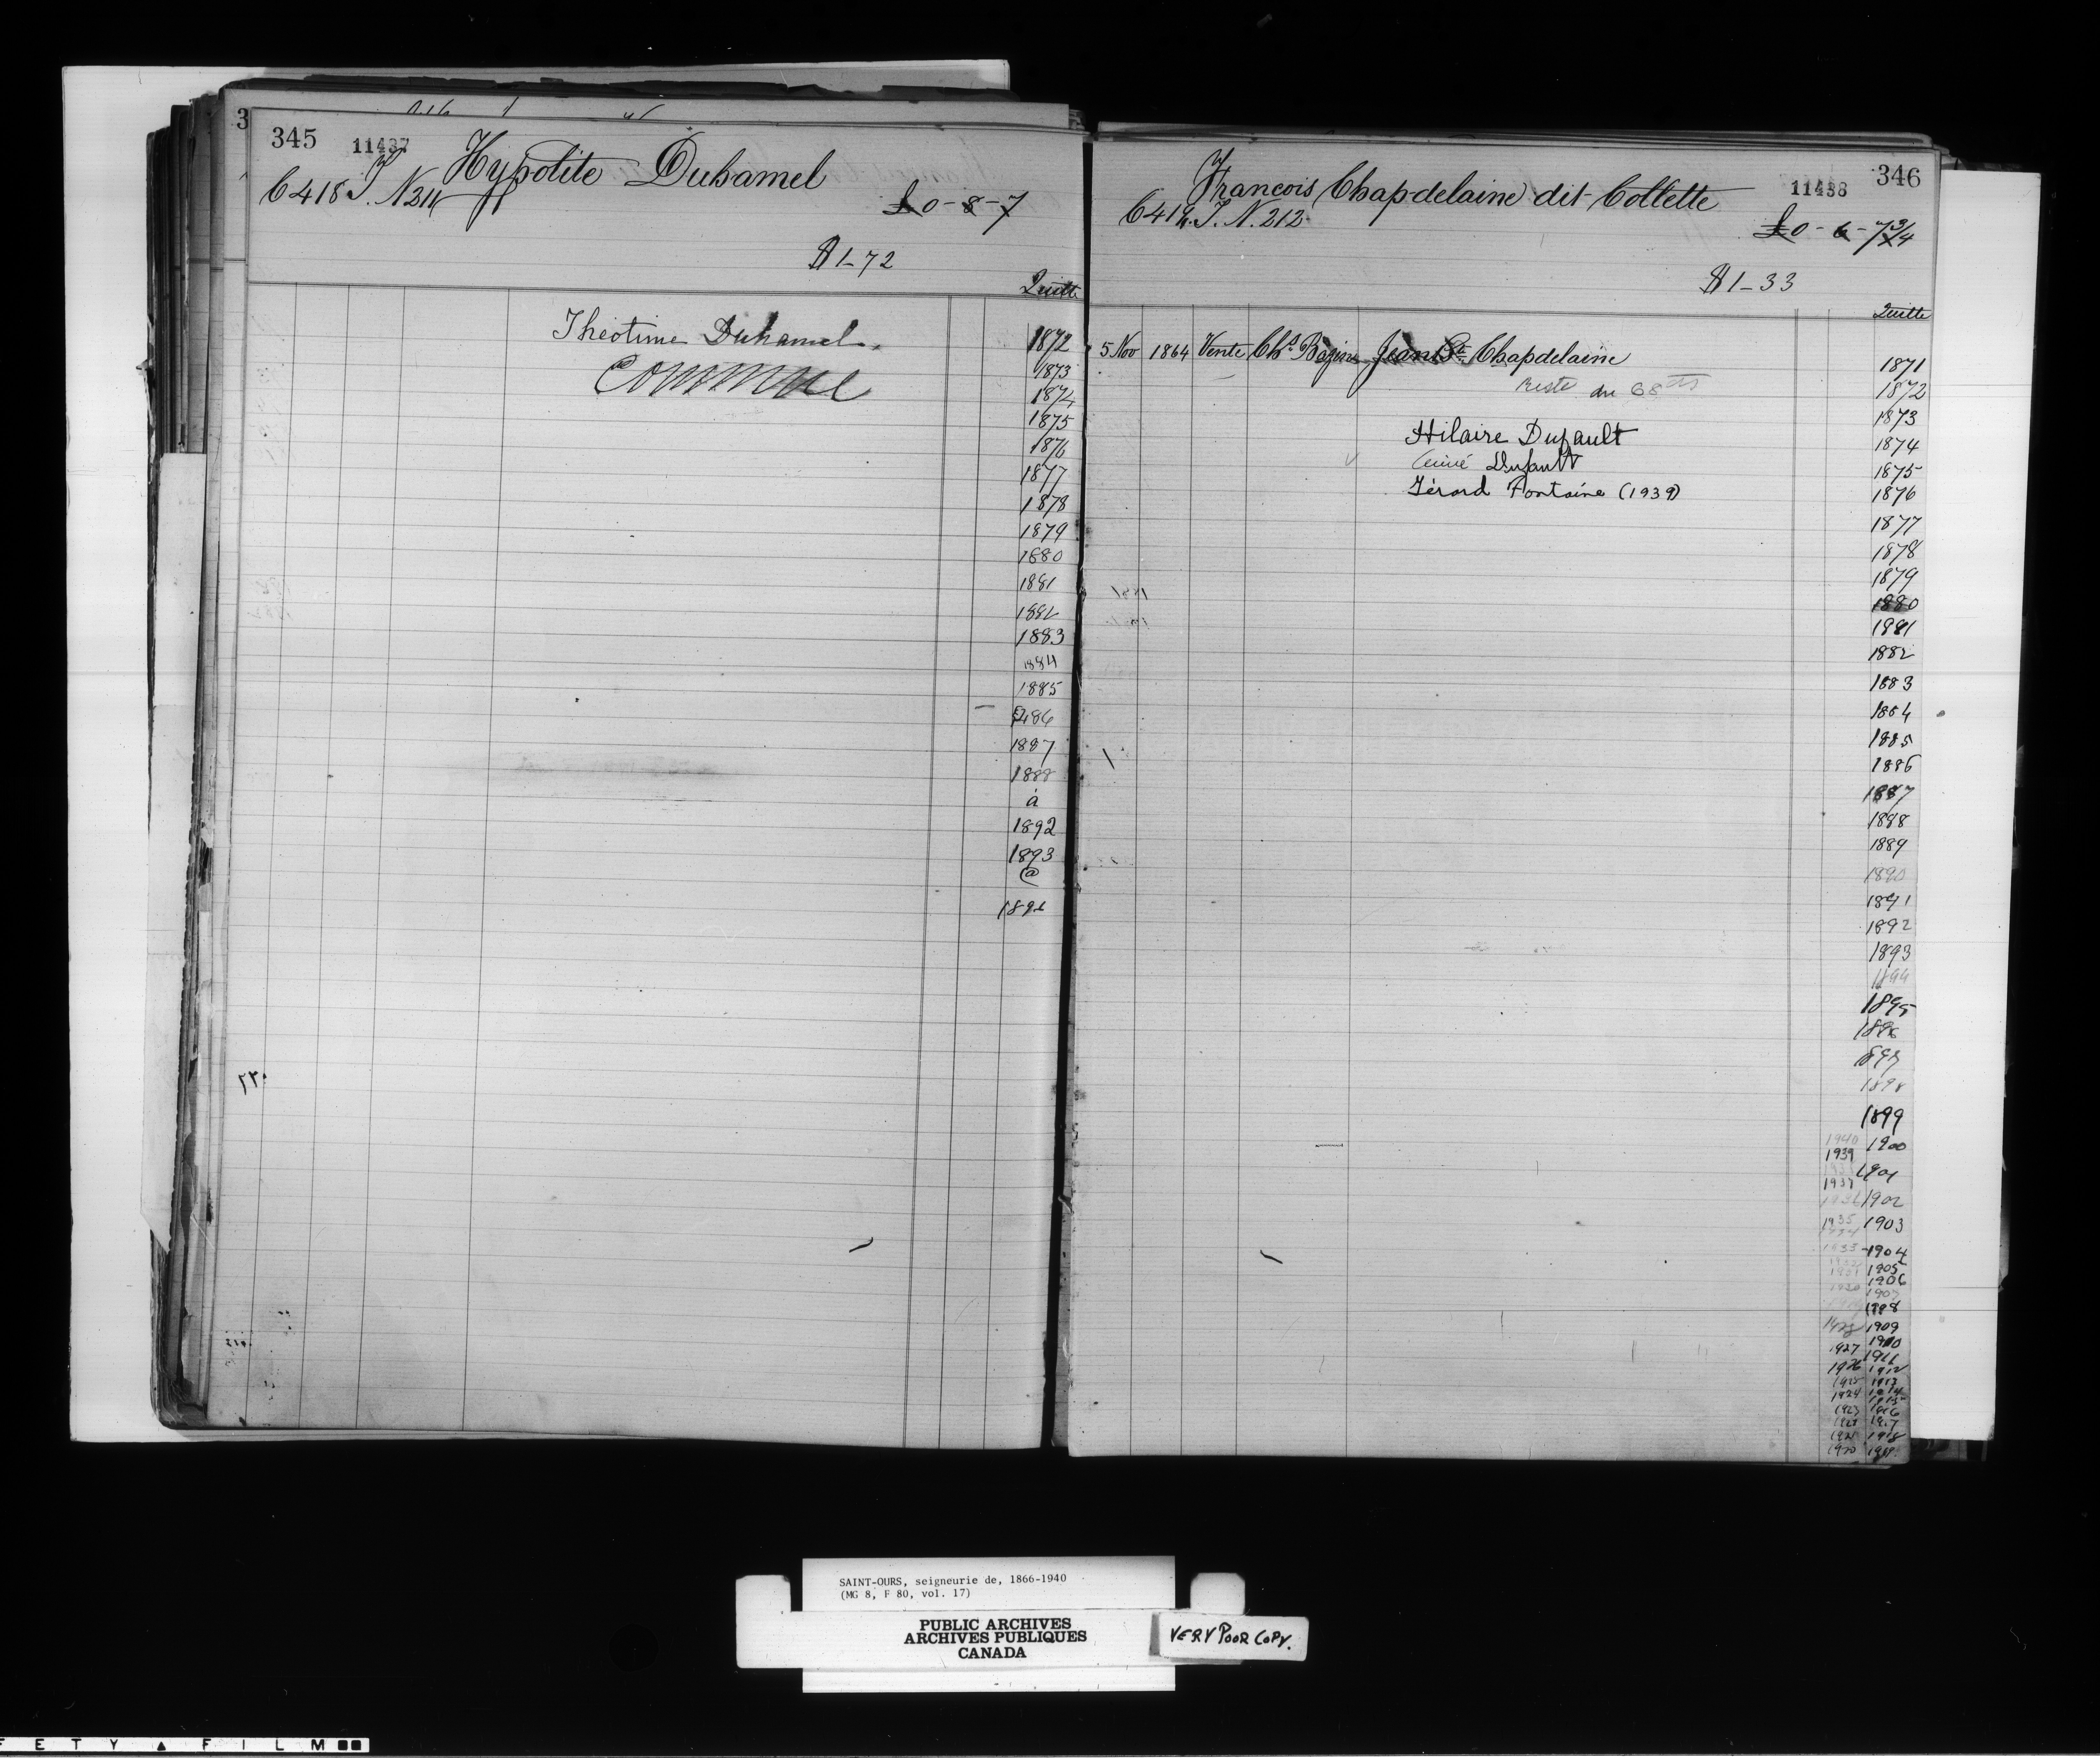 345 11437 Hypolite Duhamel
C 418 T. N 211
£0-8-7
$1-72
Quitte
Théotime Duhamel.
Commue
1872
1873
1874
1875
1876
1877
1878
1879
1880
1881
1882
1883
1884
1885
1886
1887
1888
à
1892
1893
@
346
11438
Francois Chapdelaine dit Collette
C 419. T. N. 212
£0-6-7 3/4
$1-33
Quitte
5 Nov 1864 Vente Chs Bazin Jean Bte Chapdelaine
reste du 68 cts
Hilaire Dufault
Aimé Dufault
Gérard Fontaine (1939)
1871
1872
1873
1874
1875
1876
1877
1878
1879
1880
1881
1882
1883
1884
1885
1886
1887
1888
1889
1890
1891
1892
1893
1894
1895
1896
1897
1898
1899
1940 1900
1939
1901
1937
1936 1902
1935 1903
1934
1933 1904
1905
1931
1906
1930
1907
1908
1928 1909
1910
1927 1911
1926 1912
1925 1913
1924 1914
1915
1923 1916
1922 1917
1921 1918
1920 1919
SAINT-OURS, seigneurie de, 1866-1940
(MG 8, F 80, vol. 17)
PUBLIC ARCHIVES
ARCHIVES PUBLIQUES
CANADA
VERY POOR COPY.
F E T Y ▲ F I L M